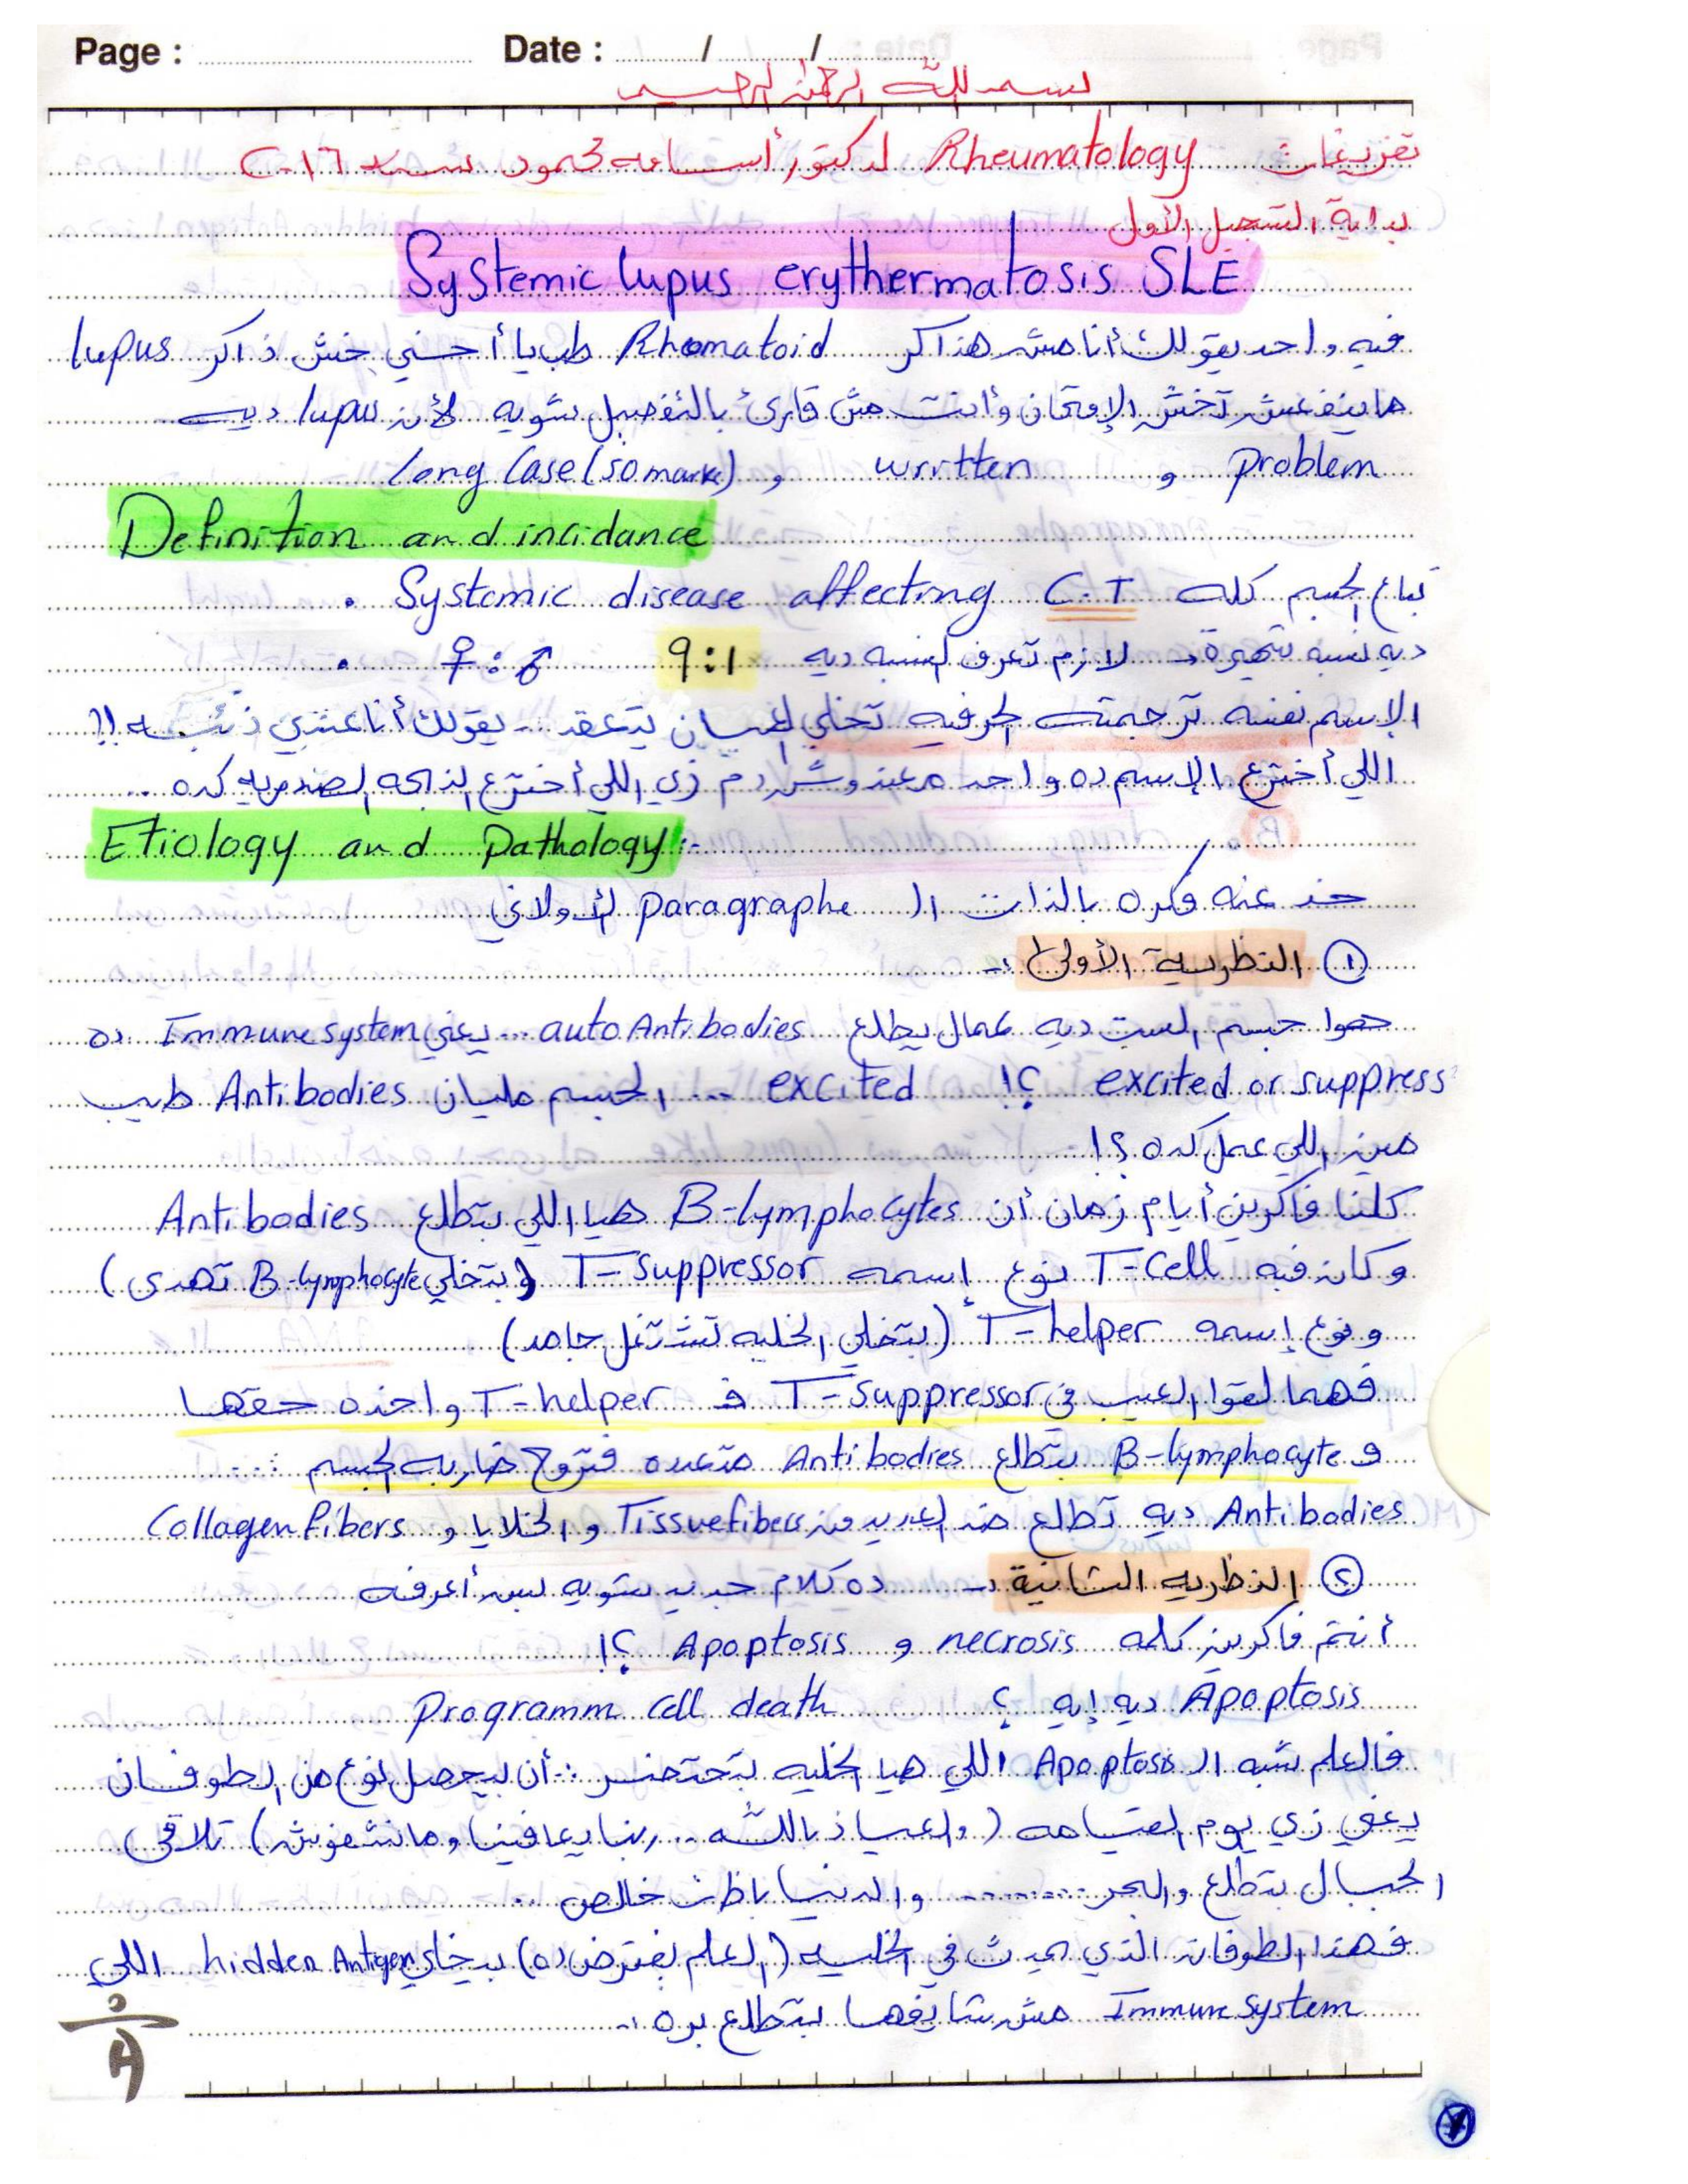 Page : Date : / /
بسم الله الرحمن الرحيم
تفريغات Rheumatology لدكتور أسامه محمود سنه ٢٠١٦
بداية التسجيل الأول
Systemic lupus erythermatosis SLE
فيه واحد يقولك أنا مش هذاكر Rhomatoid طب يا أخي خش ذاكر lupus
ماينفعش تخش الإمتحان وأنت مش قارئ بالتفصيل شويه لأن lupus ديه
problem و wrrtten و long Case (50 mark)
Definition and incidance
• Systemic disease affecting C.T بتاع الجسم كله
• ♀ : ♂ 9:1 ديه نسبه شهيرة → لازم تعرف النسبه ديه
الإسم نفسه ترجمته الحرفيه تخلي الإنسان يتعقد .. يقولك أنا عندي ذئبه !!
اللي أخترع الإسم ده واحد معندوش دم زي اللي أخترع الذبحه الصدريه كده ..
Etiology and Pathology :-
خد عنه فكره بالذات ال paragraphe الأولاني
① النظريه الأولى :-
جسم الست ديه عمال يطلع auto Antibodies ... يعني Immune system ده
excited or suppress ؟! excited ... الجسم مليان Antibodies طيب
مين اللي عمل كده ؟!
كلنا فاكرين أيام زمان أن B-lymphocytes هيا اللي بتطلع Antibodies
وكان فيه T-Cell نوع إسمه T-suppressor (بتخلي B-lymphocyte تهدى)
ونوع إسمه T-helper (بتخلي الخليه تشتغل جامد)
فهما لقوا العيب في T-suppressor ف T-helper واخده حقها
و B-lymphocyte بتطلع Antibodies متعدده فتروح ضاربه الجسم ...
Antibodies ديه تطلع ضد العديد من Tissue fibers و الخلايا و Collagen fibers
② النظريه الثانية :- ده كلام جديد شويه بس أعرفه
أنتم فاكرين كلمه necrosis و Apoptosis ؟!
Apoptosis ديه إيه ؟ Programm cell death
فالعلم شبه ال Apoptosis اللي هيا الخليه بتحتضر .. أن بيحصل نوع من الطوفان
يعني زي يوم القيامه (والعياذ بالله .. ربنا يعافينا ومانشفوش) تلاقي
الجبال بتطلع والبحر ......... والدنيا باظت خالص ..
فهذا الطوفان الذي يحدث في الخليه (العلم بفترض ده) بيخلي hidden Antigen اللي
Immune system مش شايفها بتطلع بره :-